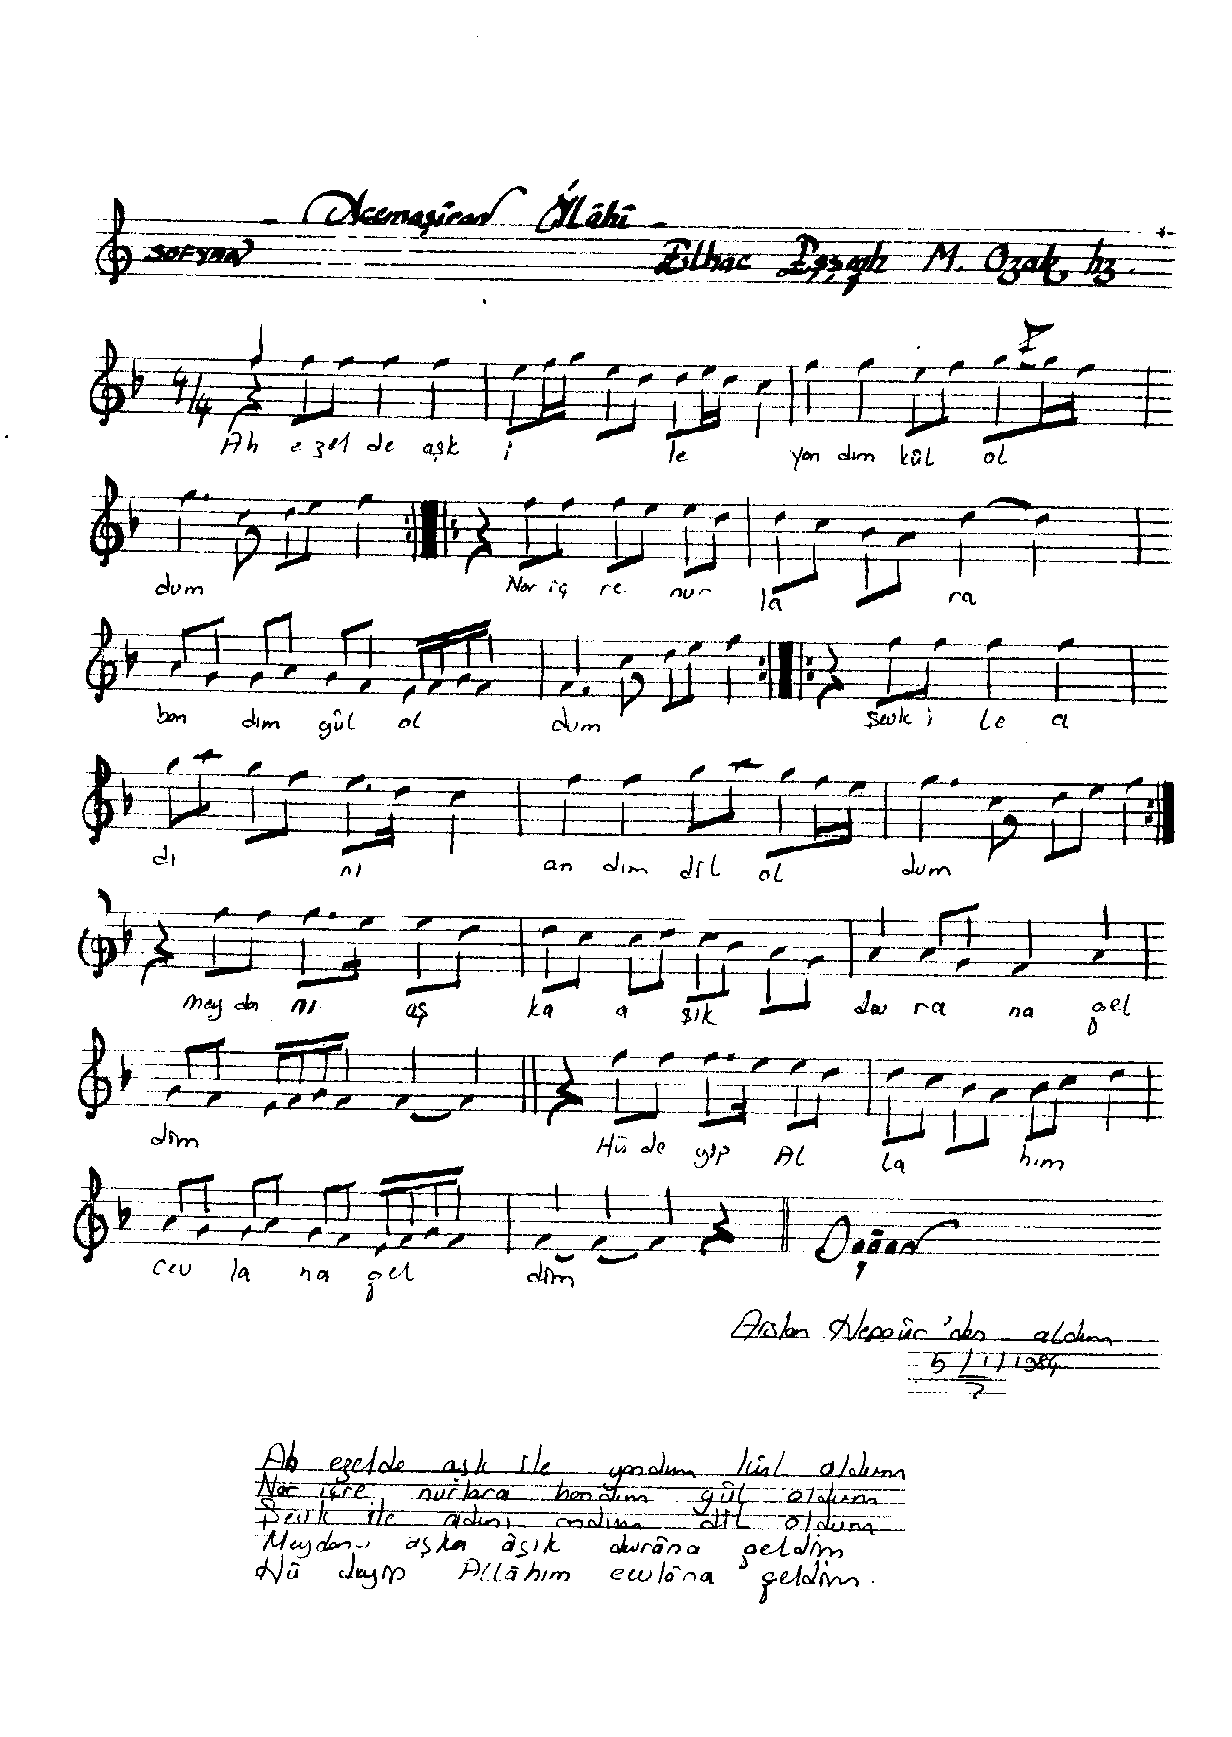 Acemaşîran İlâhî
SOFYAN
Elhac Eşşeyh M. Ozak hz.
4/4
Ah e zel de aşk i le yan dım kül ol
dum Nar iç re nur la ra
ban dım gül ol dum Şevk i le a
dı nı an dım dil ol dum
mey da nı aş ka a şık dev ra na gel
dim Hû de yip Al la hım
cev la na gel dim Doğan
Arslan Hepgür'den aldım
5/1/1984
Ah ezelde aşk ile yandım kül oldum
Nar içre nurlara bandım gül oldum
Şevk ile adını andım dil oldum
Meydan-ı aşka âşık devrâna geldim
Hû deyip Allâhım cevlâna geldim.